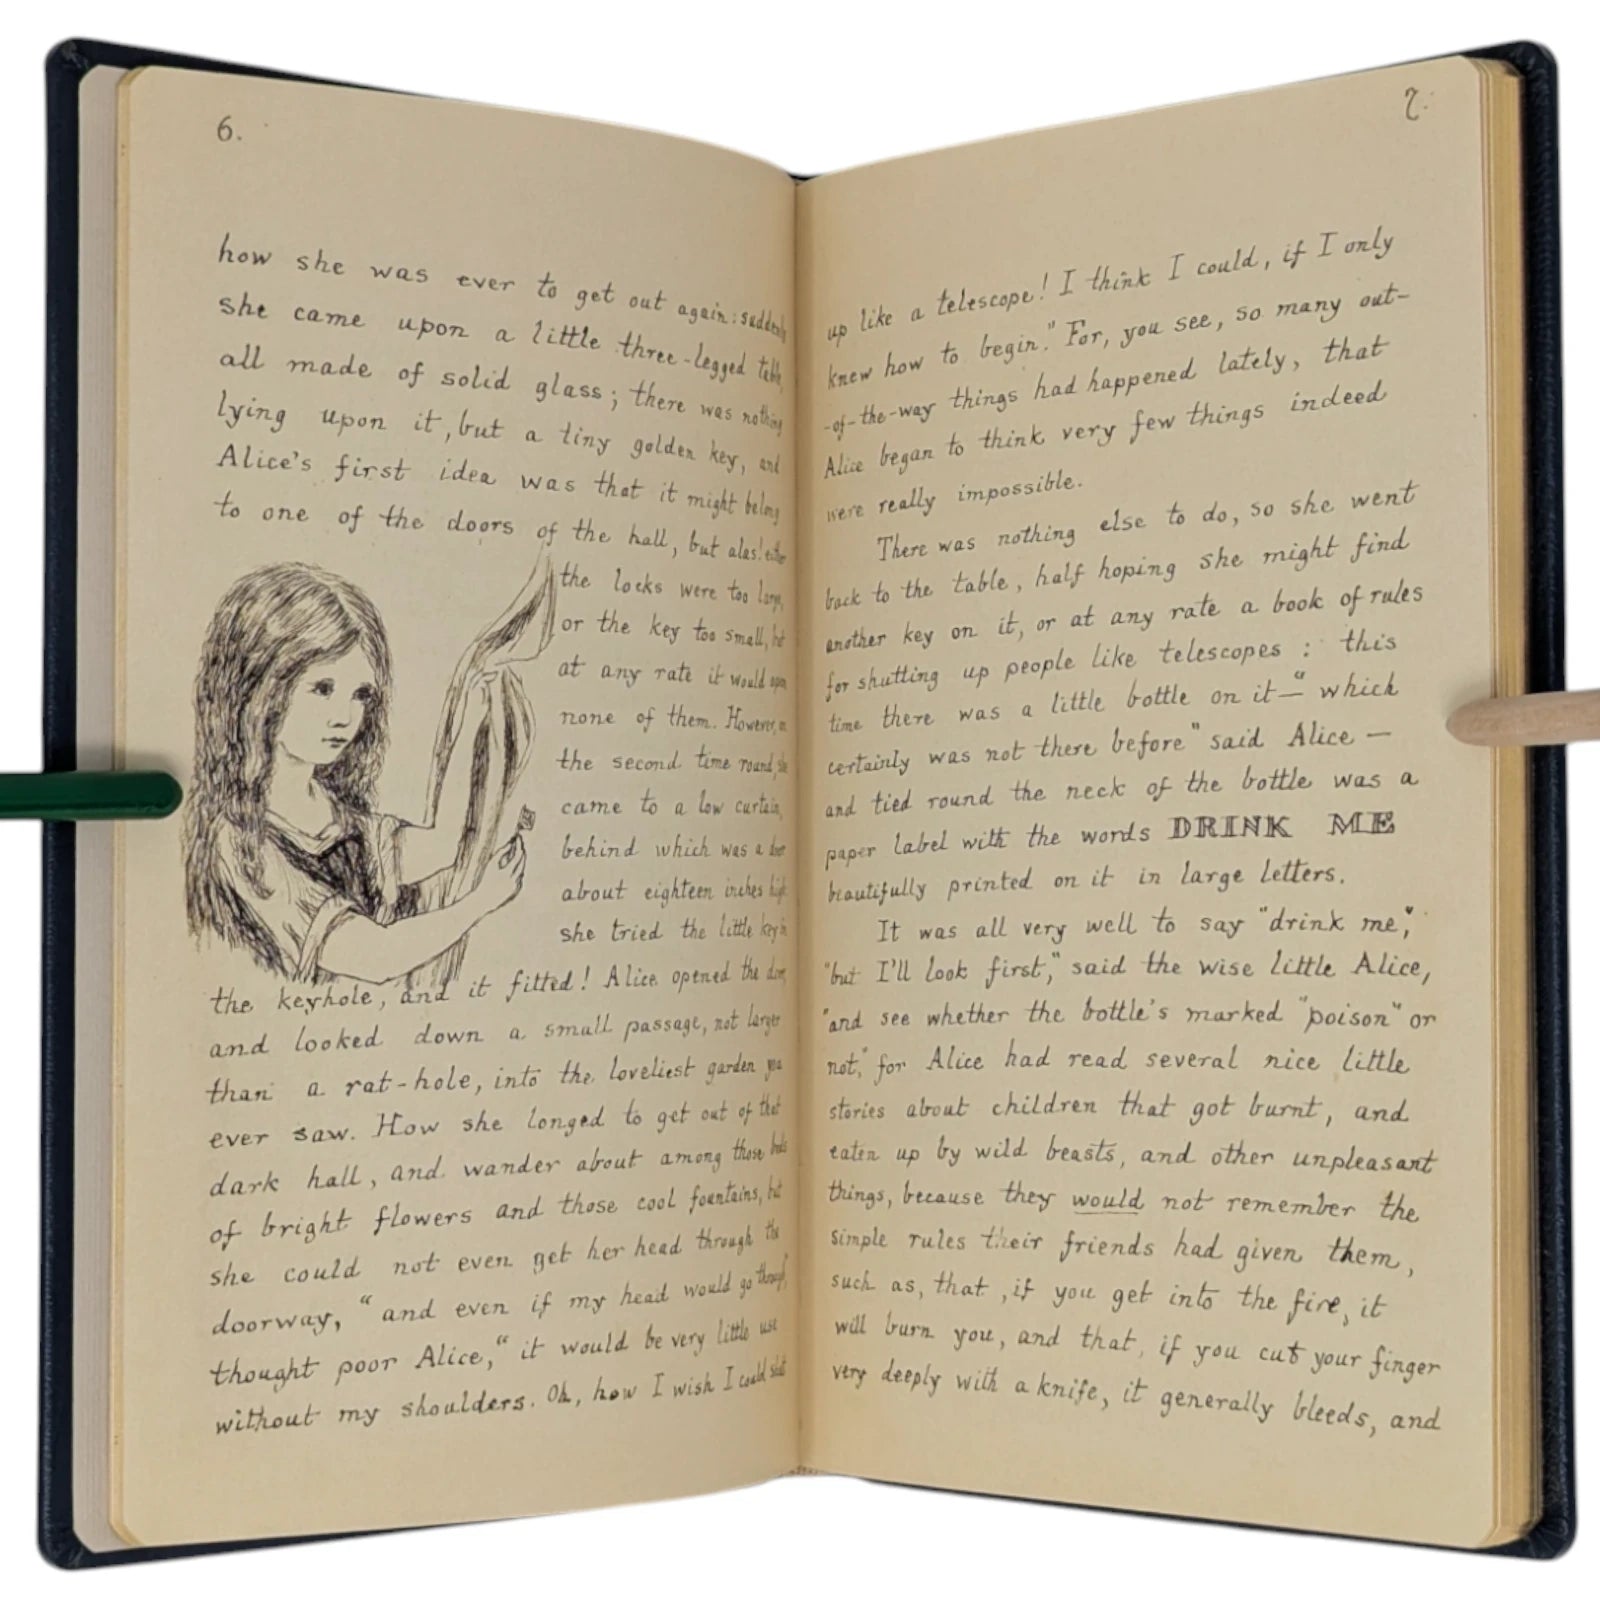 6.
how she was ever to get out again: suddenly
she came upon a little three-legged table,
all made of solid glass; there was nothing
lying upon it, but a tiny golden key, and
Alice's first idea was that it might belong
to one of the doors of the hall, but alas! either
the locks were too large,
or the key too small, but
at any rate it would open
none of them. However, on
the second time round, she
came to a low curtain,
behind which was a door
about eighteen inches high:
she tried the little key in
the keyhole, and it fitted! Alice opened the door,
and looked down a small passage, not larger
than a rat-hole, into the loveliest garden you
ever saw. How she longed to get out of that
dark hall, and wander about among those beds
of bright flowers and those cool fountains, but
she could not even get her head through the
doorway, "and even if my head would go through,"
thought poor Alice, "it would be very little use
without my shoulders. Oh, how I wish I could shut
7.
up like a telescope! I think I could, if I only
knew how to begin." For, you see, so many out-
-of-the-way things had happened lately, that
Alice began to think very few things indeed
were really impossible.
There was nothing else to do, so she went
back to the table, half hoping she might find
another key on it, or at any rate a book of rules
for shutting up people like telescopes: this
time there was a little bottle on it—"which
certainly was not there before" said Alice—
and tied round the neck of the bottle was a
paper label with the words DRINK ME
beautifully printed on it in large letters.
It was all very well to say "drink me",
"but I'll look first," said the wise little Alice,
"and see whether the bottle's marked "poison" or
not," for Alice had read several nice little
stories about children that got burnt, and
eaten up by wild beasts, and other unpleasant
things, because they would not remember the
simple rules their friends had given them,
such as, that, if you get into the fire, it
will burn you, and that, if you cut your finger
very deeply with a knife, it generally bleeds, and